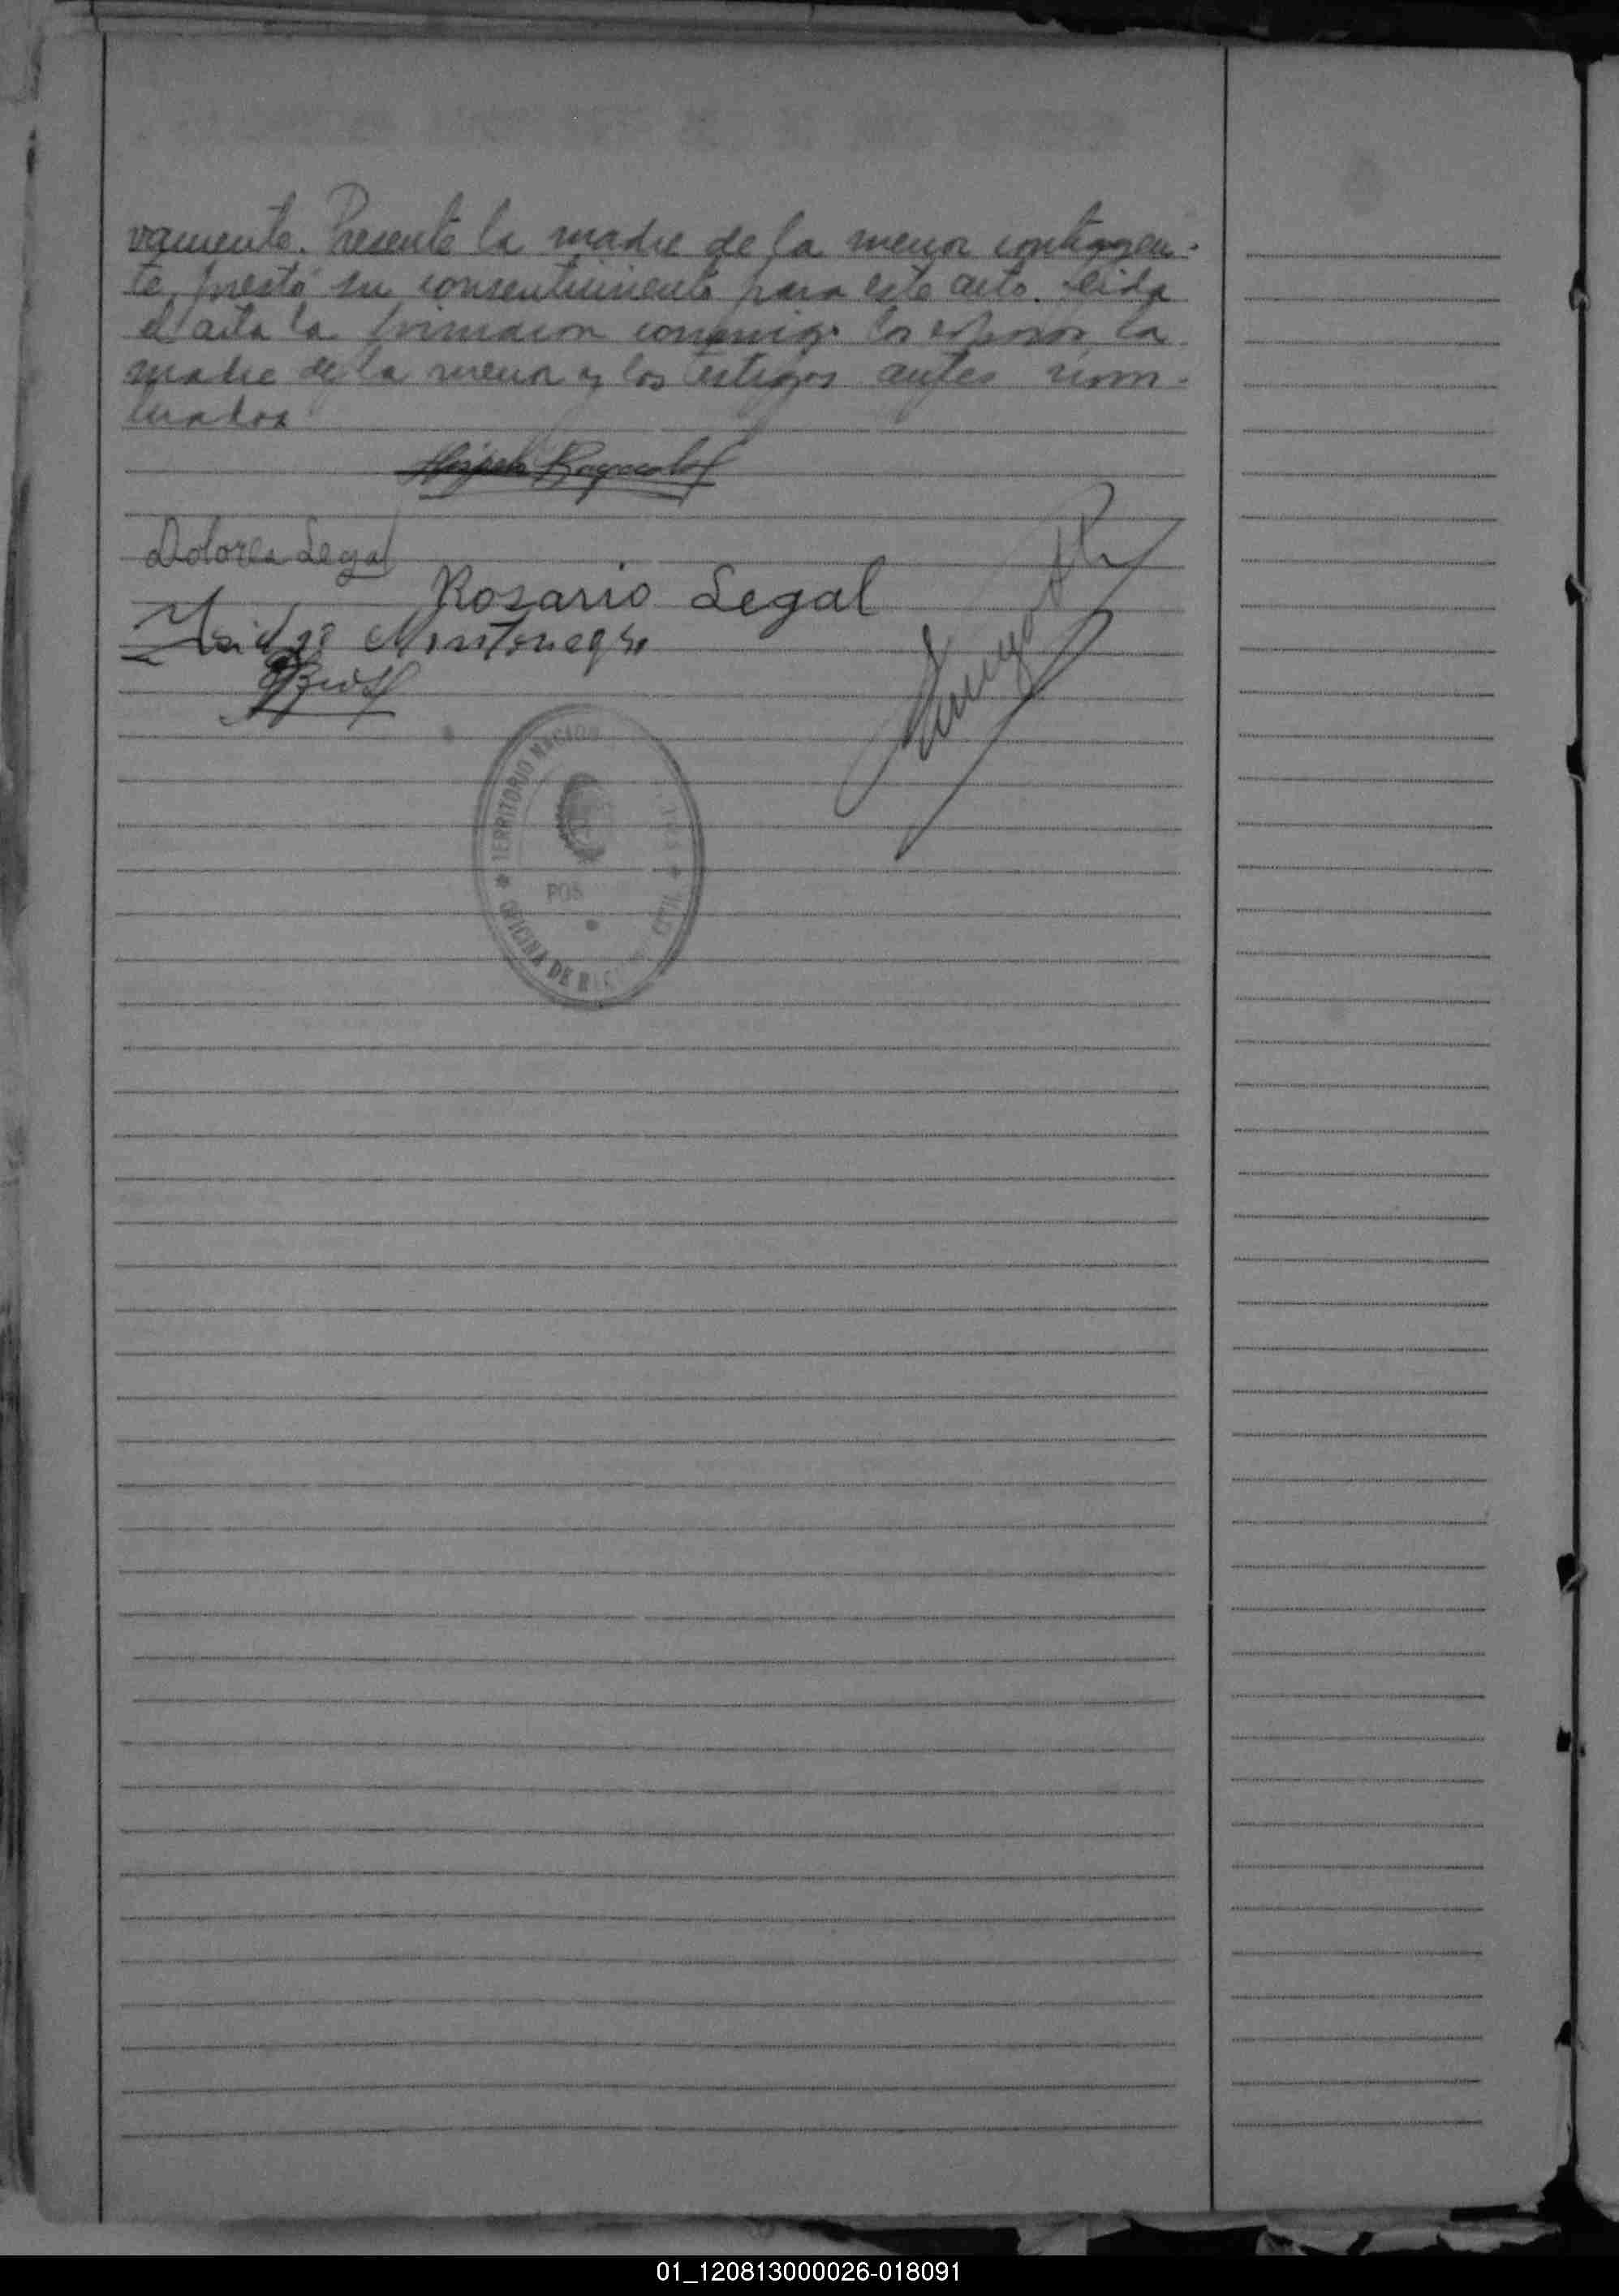 vamente. Presente la madre de la menor contrayen-
te, prestó su consentimiento para este acto. Leida
el acta la firmaron conmigo los esposos, la
madre de la menor y los testigos antes nom-
brados
Dolores Legal
Rosario Legal
Isidro Montenegro
TERRITORIO NACIO
POS
OFICINA DE R CIVIL
01_120813000026-018091